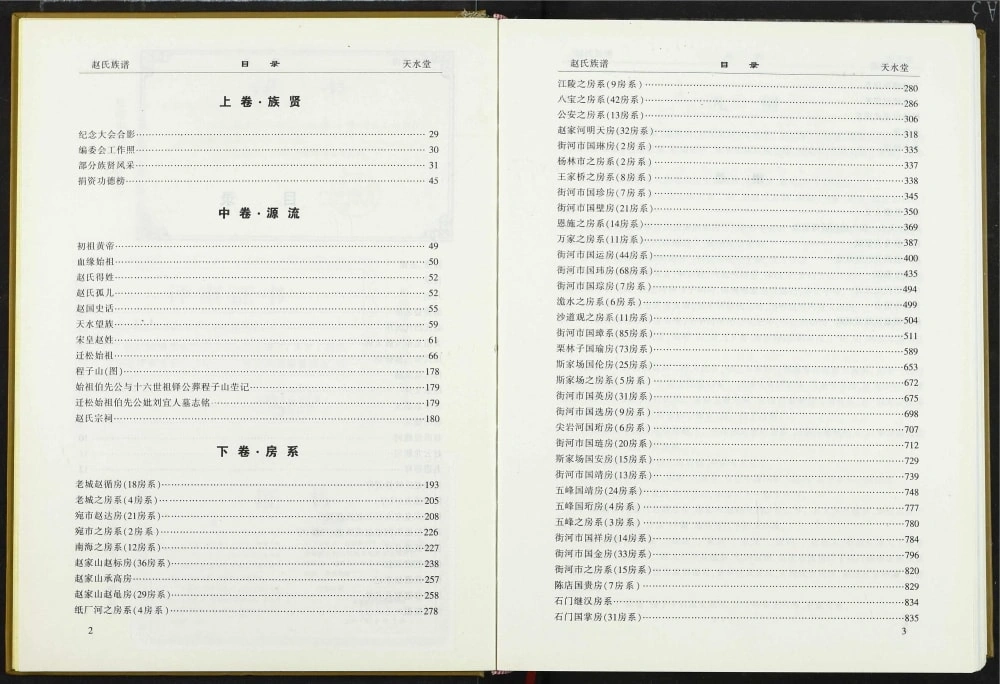 赵氏族谱 目 录 天水堂
上 卷·族 贤
纪念大会合影……29
编委会工作照……30
部分族贤风采……31
捐资功德榜……45
中 卷·源 流
初祖黄帝……49
血缘始祖……50
赵氏得姓……52
赵氏孤儿……52
赵国史话……55
天水望族……59
宋皇赵姓……61
迁松始祖……66
程子山(图)……178
始祖伯先公与十六世祖铎公葬程子山茔记……179
迁松始祖伯先公妣刘宜人墓志铭……179
赵氏宗祠……180
下 卷·房 系
老城赵循房(18房系)……193
老城之房系(4房系)……205
宛市赵达房(21房系)……208
宛市之房系(2房系)……226
南海之房系(12房系)……227
赵家山赵标房(36房系)……238
赵家山承高房……257
赵家山赵黾房(29房系)……258
纸厂河之房系(4房系)……278
2
赵氏族谱 目 录 天水堂
江陵之房系(9房系)……280
八宝之房系(42房系)……286
公安之房系(13房系)……306
赵家河明天房(32房系)……318
街河市国琳房(2房系)……335
杨林市之房系(2房系)……337
王家桥之房系(8房系)……338
街河市国珍房(7房系)……345
街河市国璧房(21房系)……350
恩施之房系(14房系)……369
万家之房系(11房系)……387
街河市国运房(44房系)……400
街河市国玮房(68房系)……435
街河市国琮房(7房系)……494
澹水之房系(6房系)……499
沙道观之房系(11房系)……504
街河市国璋系(85房系)……511
栗林子国瑜房(73房系)……589
斯家场国伦房(25房系)……653
斯家场之房系(5房系)……672
街河市国英房(31房系)……675
街河市国选房(9房系)……698
尖岩河国珩房(6房系)……707
街河市国琏房(20房系)……712
斯家场国安房(15房系)……729
街河市国靖房(13房系)……739
五峰国靖房(24房系)……748
五峰国珩房(4房系)……777
五峰之房系(3房系)……780
街河市国祥房(14房系)……784
街河市国金房(33房系)……796
街河市之房系(15房系)……820
陈店国贵房(7房系)……829
石门继汉房系……834
石门国掌房(31房系)……835
3